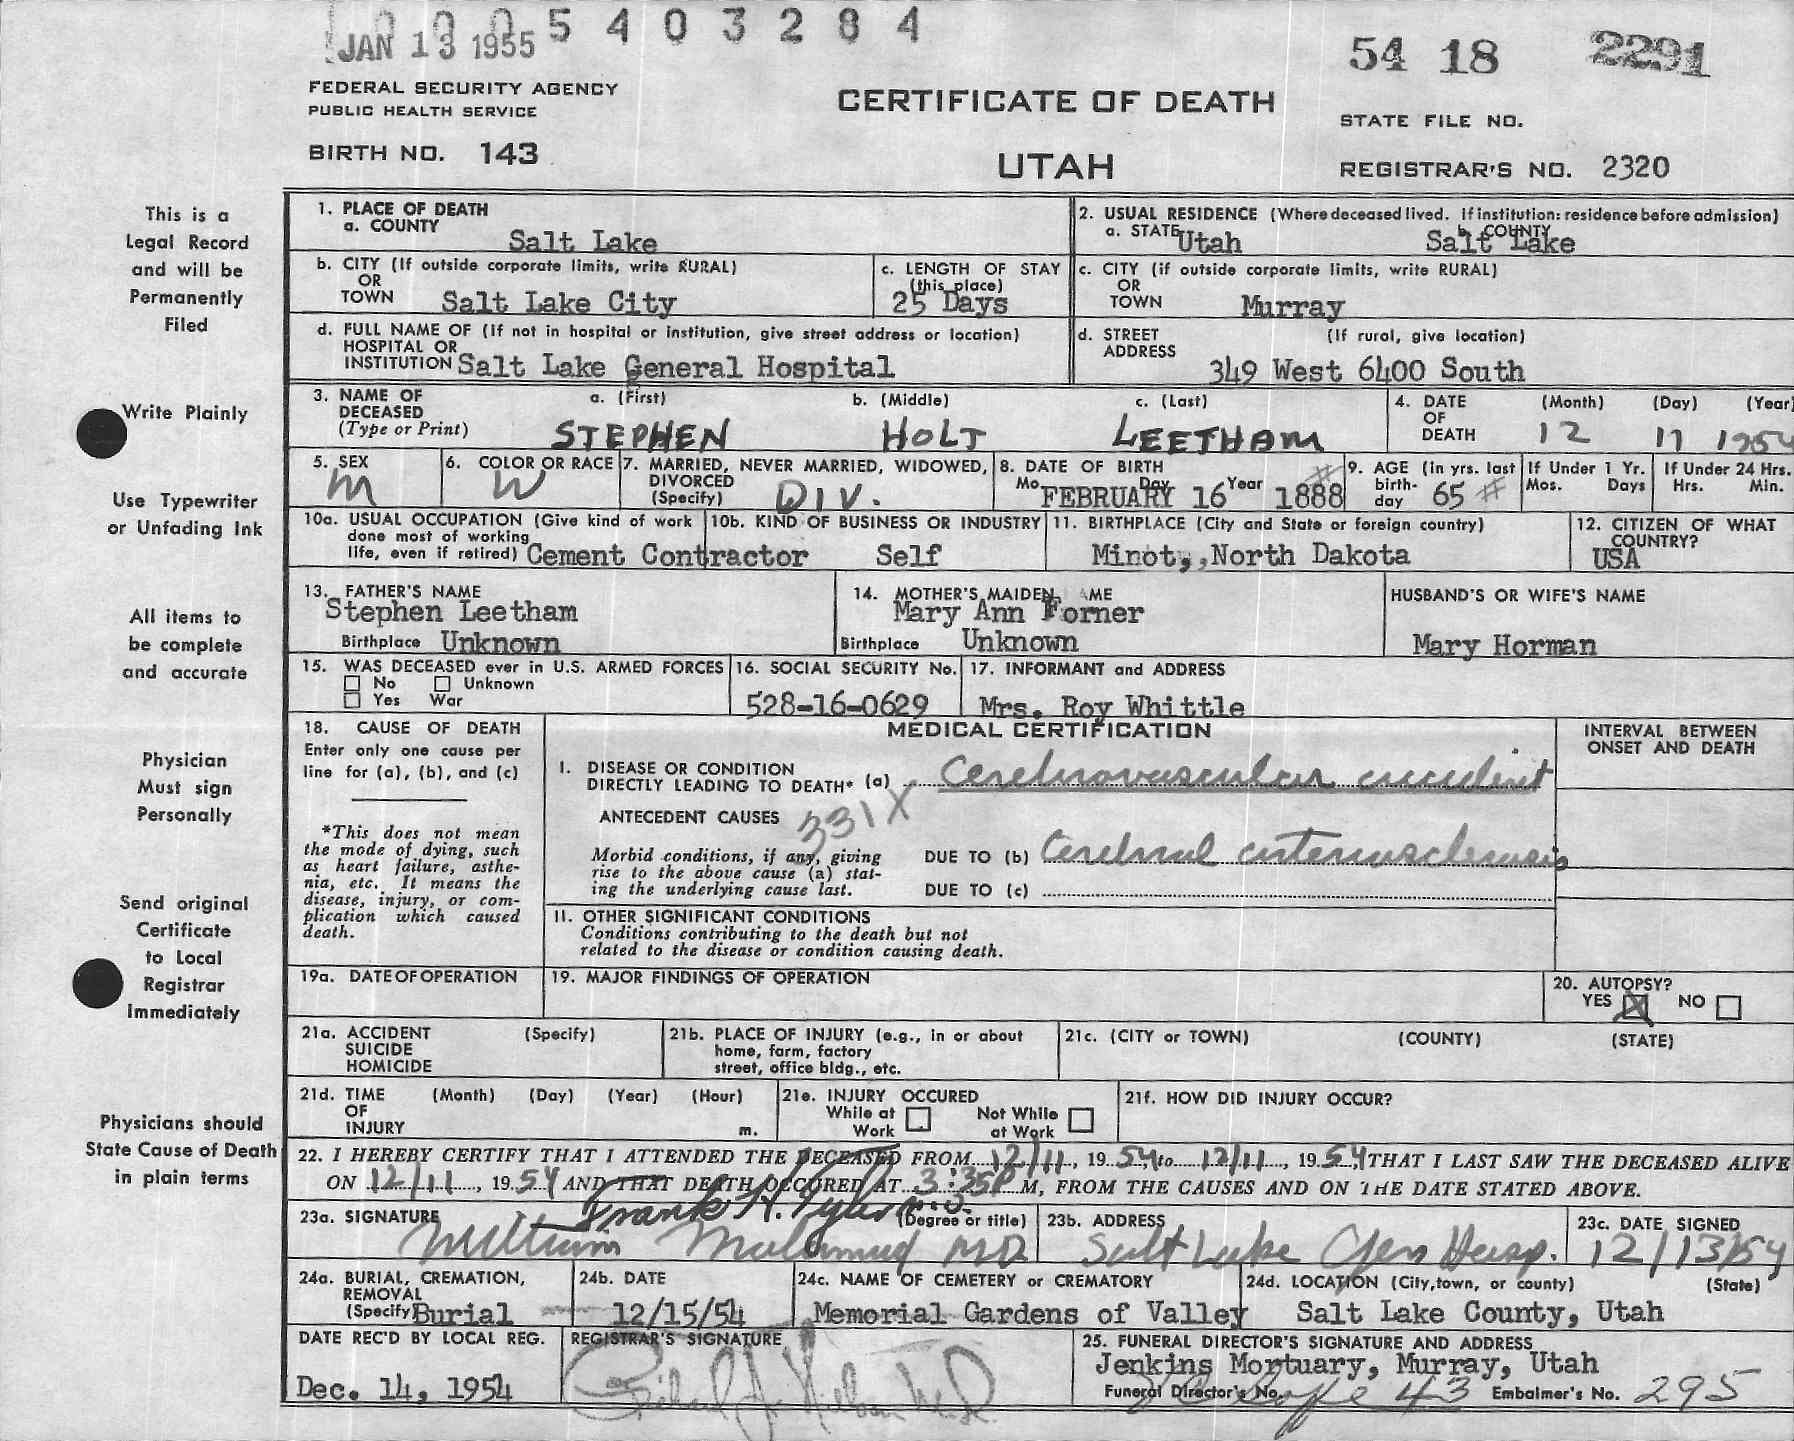 0005403284
JAN 13 1955
54 18 2291
FEDERAL SECURITY AGENCY
PUBLIC HEALTH SERVICE
CERTIFICATE OF DEATH
STATE FILE NO.
BIRTH NO. 143
UTAH
REGISTRAR'S NO. 2320
This is a
Legal Record
and will be
Permanently
Filed
Write Plainly
Use Typewriter
or Unfading Ink
All items to
be complete
and accurate
Physician
Must sign
Personally
Send original
Certificate
to Local
Registrar
Immediately
Physicians should
State Cause of Death
in plain terms
1. PLACE OF DEATH
a. COUNTY
Salt Lake
2. USUAL RESIDENCE (Where deceased lived. If institution: residence before admission)
a. STATE Utah b. COUNTY Salt Lake
b. CITY (If outside corporate limits, write RURAL)
OR
TOWN Salt Lake City
c. LENGTH OF STAY
(this place)
25 Days
c. CITY (if outside corporate limits, write RURAL)
OR
TOWN Murray
d. FULL NAME OF (If not in hospital or institution, give street address or location)
HOSPITAL OR
INSTITUTION Salt Lake General Hospital
d. STREET (If rural, give location)
ADDRESS
349 West 6400 South
3. NAME OF
DECEASED
(Type or Print)
a. (First) b. (Middle) c. (Last)
STEPHEN HOLT LEETHAM
4. DATE (Month) (Day) (Year)
OF
DEATH 12 11 1954
5. SEX
M
6. COLOR OR RACE
W
7. MARRIED, NEVER MARRIED, WIDOWED,
DIVORCED
(Specify) DIV.
8. DATE OF BIRTH
Mo. Day Year
FEBRUARY 16 1888 #
9. AGE (in yrs. last
birth-
day 65 #
If Under 1 Yr.
Mos. Days
If Under 24 Hrs.
Hrs. Min.
10a. USUAL OCCUPATION (Give kind of work
done most of working
life, even if retired) Cement Contractor
10b. KIND OF BUSINESS OR INDUSTRY
Self
11. BIRTHPLACE (City and State or foreign country)
Minot,,North Dakota
12. CITIZEN OF WHAT
COUNTRY?
USA
13. FATHER'S NAME
Stephen Leetham
Birthplace Unknown
14. MOTHER'S MAIDEN AME
Mary Ann Forner
Birthplace Unknown
HUSBAND'S OR WIFE'S NAME
Mary Horman
15. WAS DECEASED ever in U.S. ARMED FORCES
No Unknown
Yes War
16. SOCIAL SECURITY No.
528-16-0629
17. INFORMANT and ADDRESS
Mrs. Roy Whittle
18. CAUSE OF DEATH
Enter only one cause per
line for (a), (b), and (c)
*This does not mean
the mode of dying, such
as heart failure, asthe-
nia, etc. It means the
disease, injury, or com-
plication which caused
death.
MEDICAL CERTIFICATION
INTERVAL BETWEEN
ONSET AND DEATH
I. DISEASE OR CONDITION
DIRECTLY LEADING TO DEATH* (a) Cerebrovascular accident
ANTECEDENT CAUSES 331X
Morbid conditions, if any, giving
rise to the above cause (a) stat-
ing the underlying cause last.
DUE TO (b) Cerebral arteriosclerosis
DUE TO (c)
II. OTHER SIGNIFICANT CONDITIONS
Conditions contributing to the death but not
related to the disease or condition causing death.
19a. DATE OF OPERATION
19. MAJOR FINDINGS OF OPERATION
20. AUTOPSY?
YES X NO
21a. ACCIDENT (Specify)
SUICIDE
HOMICIDE
21b. PLACE OF INJURY (e.g., in or about
home, farm, factory
street, office bldg., etc.
21c. (CITY or TOWN) (COUNTY) (STATE)
21d. TIME (Month) (Day) (Year) (Hour)
OF
INJURY m.
21e. INJURY OCCURED
While at Not While
Work at Work
21f. HOW DID INJURY OCCUR?
22. I HEREBY CERTIFY THAT I ATTENDED THE DECEASED FROM 12/11, 1954, to 12/11, 1954, THAT I LAST SAW THE DECEASED ALIVE
ON 12/11, 1954 AND THAT DEATH OCCURED AT 3:35P M, FROM THE CAUSES AND ON THE DATE STATED ABOVE.
Frank H. Tyler M.D.
23a. SIGNATURE (Degree or title)
William MD
23b. ADDRESS
Salt Lake Gen Hosp.
23c. DATE SIGNED
12/13/54
24a. BURIAL, CREMATION,
REMOVAL
(Specify) Burial
24b. DATE
12/15/54
24c. NAME OF CEMETERY or CREMATORY
Memorial Gardens of Valley
24d. LOCATION (City, town, or county) (State)
Salt Lake County, Utah
DATE REC'D BY LOCAL REG.
Dec. 14, 1954
REGISTRAR'S SIGNATURE
25. FUNERAL DIRECTOR'S SIGNATURE AND ADDRESS
Jenkins Mortuary, Murray, Utah
Funeral Director's No. 43 Embalmer's No. 295